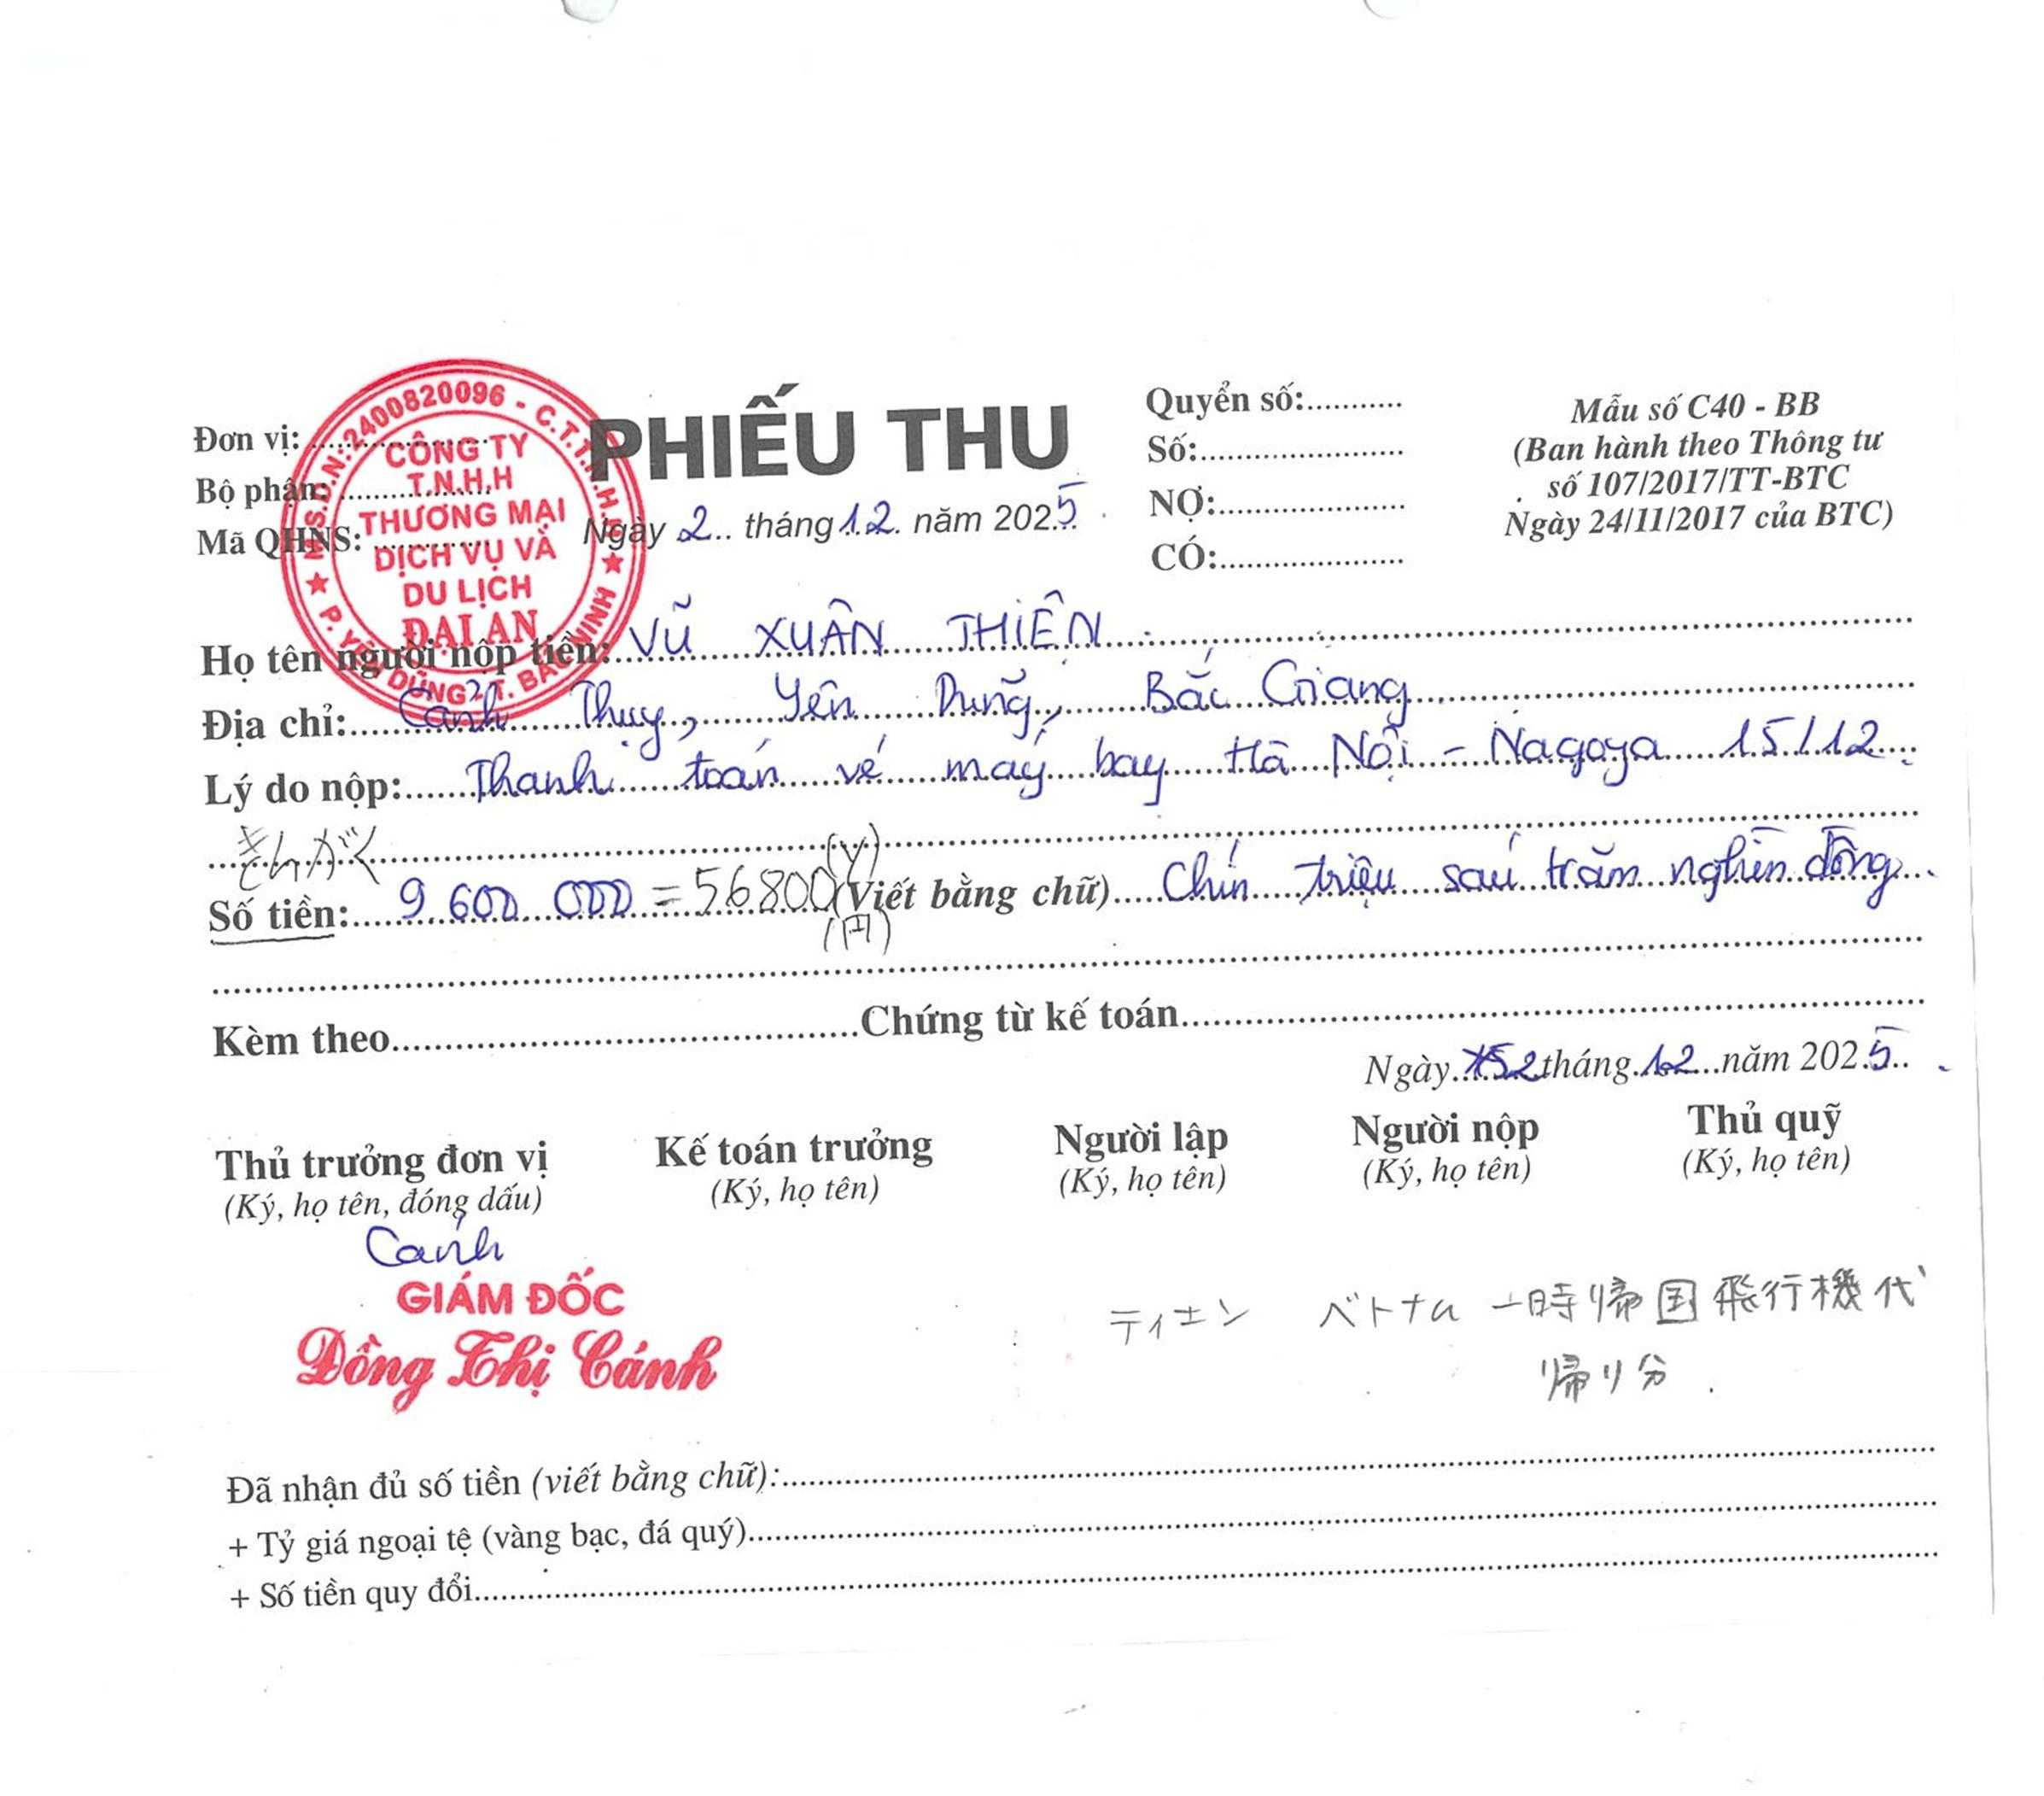 Đơn vị:
Bộ phận:
Mã QHNS:
M.S.D.N:2400820096 - C.T.T.N.H.H
CÔNG TY
T.N.H.H
THƯƠNG MẠI
DỊCH VỤ VÀ
DU LỊCH
ĐẠI AN
P. YÊN DŨNG - T. BẮC NINH
PHIẾU THU
Ngày 2 tháng 12 năm 2025
Quyển số:
Số:
NỢ:
CÓ:
Mẫu số C40 - BB
(Ban hành theo Thông tư
số 107/2017/TT-BTC
Ngày 24/11/2017 của BTC)
Họ tên người nộp tiền: VŨ XUÂN THIÊN
Địa chỉ: Cảnh Thụy, Yên Dũng, Bắc Giang
Lý do nộp: Thanh toán vé máy bay Hà Nội - Nagoya 15/12
きんがく
Số tiền: 9 600 000 = 56800 (¥) (円) (Viết bằng chữ) Chín triệu sáu trăm nghìn đồng
Kèm theo Chứng từ kế toán
Ngày 2 tháng 12 năm 2025
Thủ trưởng đơn vị Kế toán trưởng Người lập Người nộp Thủ quỹ
(Ký, họ tên, đóng dấu) (Ký, họ tên) (Ký, họ tên) (Ký, họ tên) (Ký, họ tên)
Cánh
GIÁM ĐỐC
Đồng Thị Cánh
ティエン ベトナム 一時帰国飛行機代
帰り分
Đã nhận đủ số tiền (viết bằng chữ):
+ Tỷ giá ngoại tệ (vàng bạc, đá quý)
+ Số tiền quy đổi